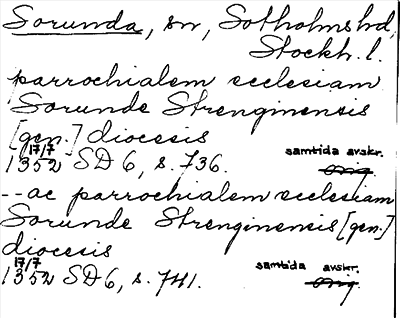 Sorunda, sn, Sotholms hd,
Stockh. l.
parrochialem ecclesiam
Sorunde Strenginensis
[gen.] diocesis
17/7
1352 SD 6, s. 736. samtida avskr.
orig.
-- ac parrochialem ecclesiam
Sorunde Strenginensis [gen.]
diocesis
17/7
1352 SD 6, s. 741. samtida avskr.
orig.